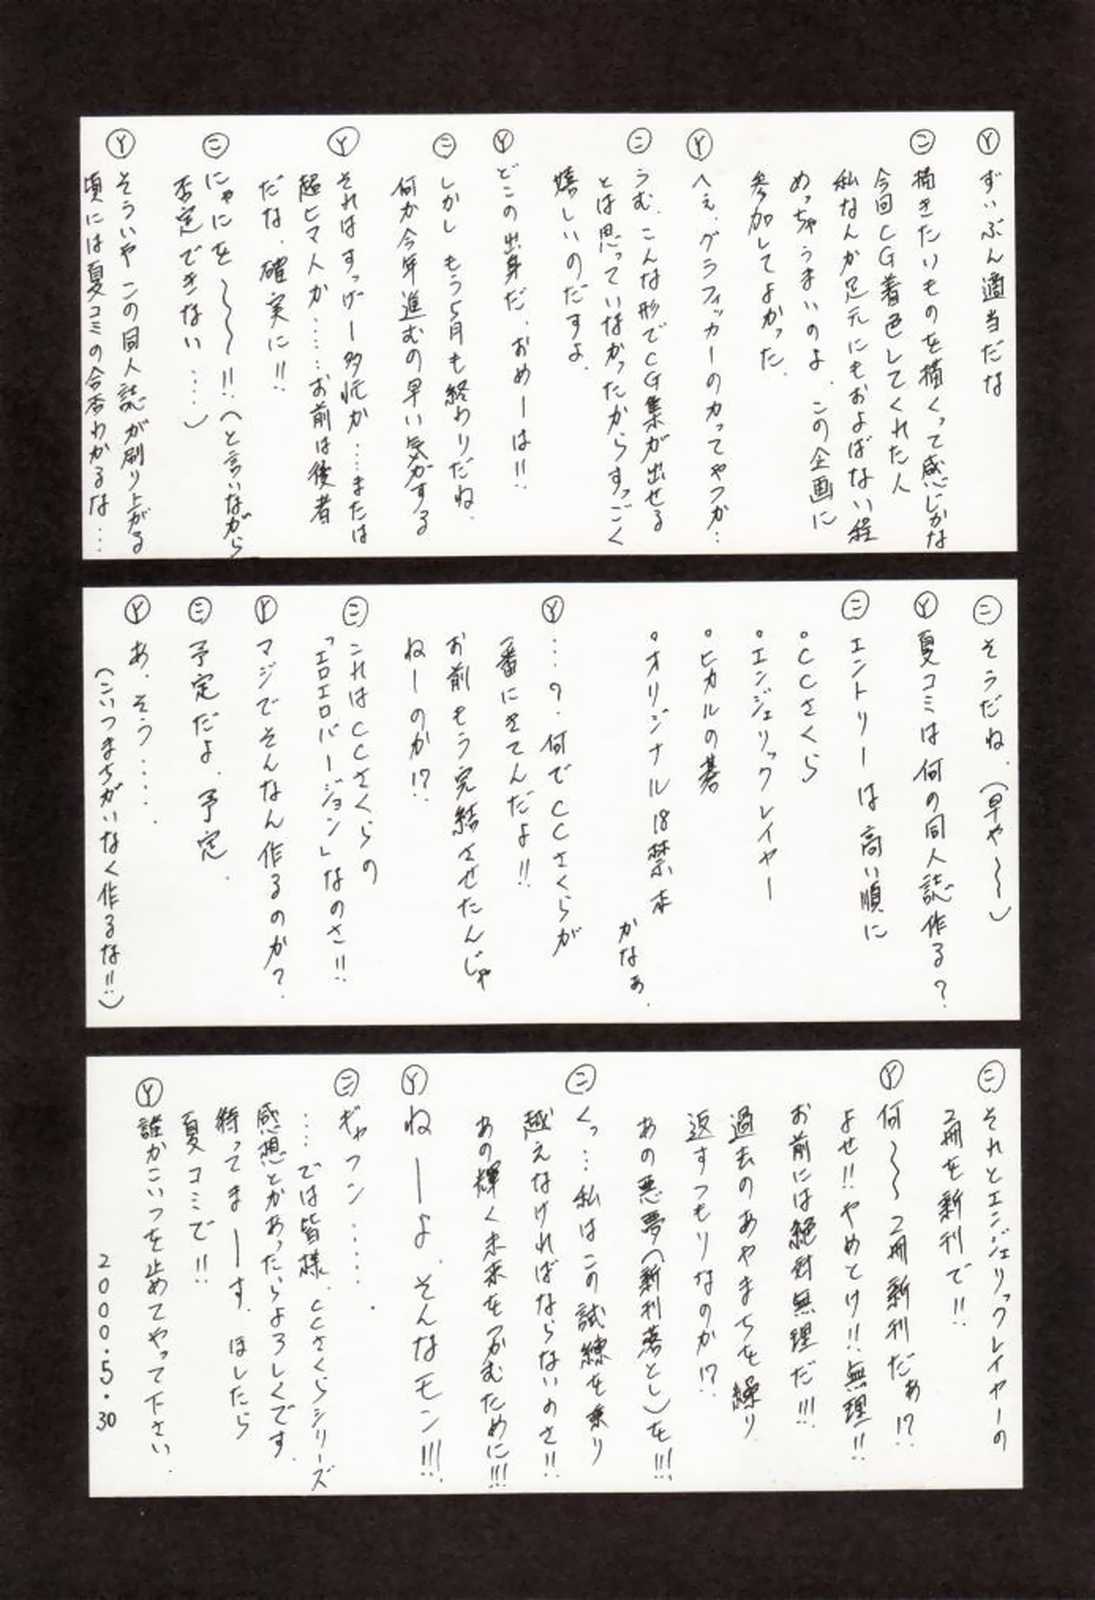 Ⓨ ずいぶん適当だな
㊁ 描きたいものを描くって感じかな
今回CG着色してくれた人
私なんか足元にもおよばない程
めっちゃうまいのよ、この企画に
参加してよかった。
Ⓨ へぇ、グラフィッカーの力ってやつか…
㊁ うむ、こんな形でCG集が出せる
とは思っていなかったからすっごく
嬉しいのだすよ。
Ⓨ どこの出身だ、おめーは!!
㊁ しかし もう5月も終わりだね、
何か今年進むの早い気がする
Ⓨ それはすっげー多忙か……または
超ヒマ人か……お前は後者
だな、確実に!!
㊁ にゃにを〜〜!!(と言いながら
否定できない……)
Ⓨ そういや この同人誌が刷り上がる
頃には夏コミの合否わかるな…
㊁ そうだね、(早や〜〜)
Ⓨ 夏コミは何の同人誌作る?
㊁ エントリーは高い順に
・CCさくら
・エンジェリックレイヤー
・ヒカルの碁
・オリジナル18禁本
かなぁ、
Ⓨ ……?、何でCCさくらが
一番にきてんだよ!!
お前もう完結させたんじゃ
ねーのか!?
㊁ これはCCさくらの
「エロエロバージョン」なのさ!!
Ⓨ マジでそんなん作るのか?
㊁ 予定だよ、予定、
Ⓨ あ、そう……
(こいつまちがいなく作るな!!)
㊁ それとエンジェリックレイヤーの
2冊を新刊で!!
Ⓨ 何〜〜2冊新刊だぁ!?
よせ!!やめとけ!!無理!!
お前には絶対無理だ!!!
過去のあやまちを繰り
返すつもりなのか!?
あの悪夢(新刊落とし)を!!!
㊁ くっ…私はこの試練を乗り
越えなければならないのさ!!
あの輝く未来をつかむために!!!
Ⓨ ねーーよ、そんなモン!!!
㊁ ギャフン……
……では皆様、CCさくらシリーズ
感想とかあったらよろしくです
待ってまーーす、ほしたら
夏コミで!!
Ⓨ 誰かこいつを止めてやって下さい、
2000.5.30